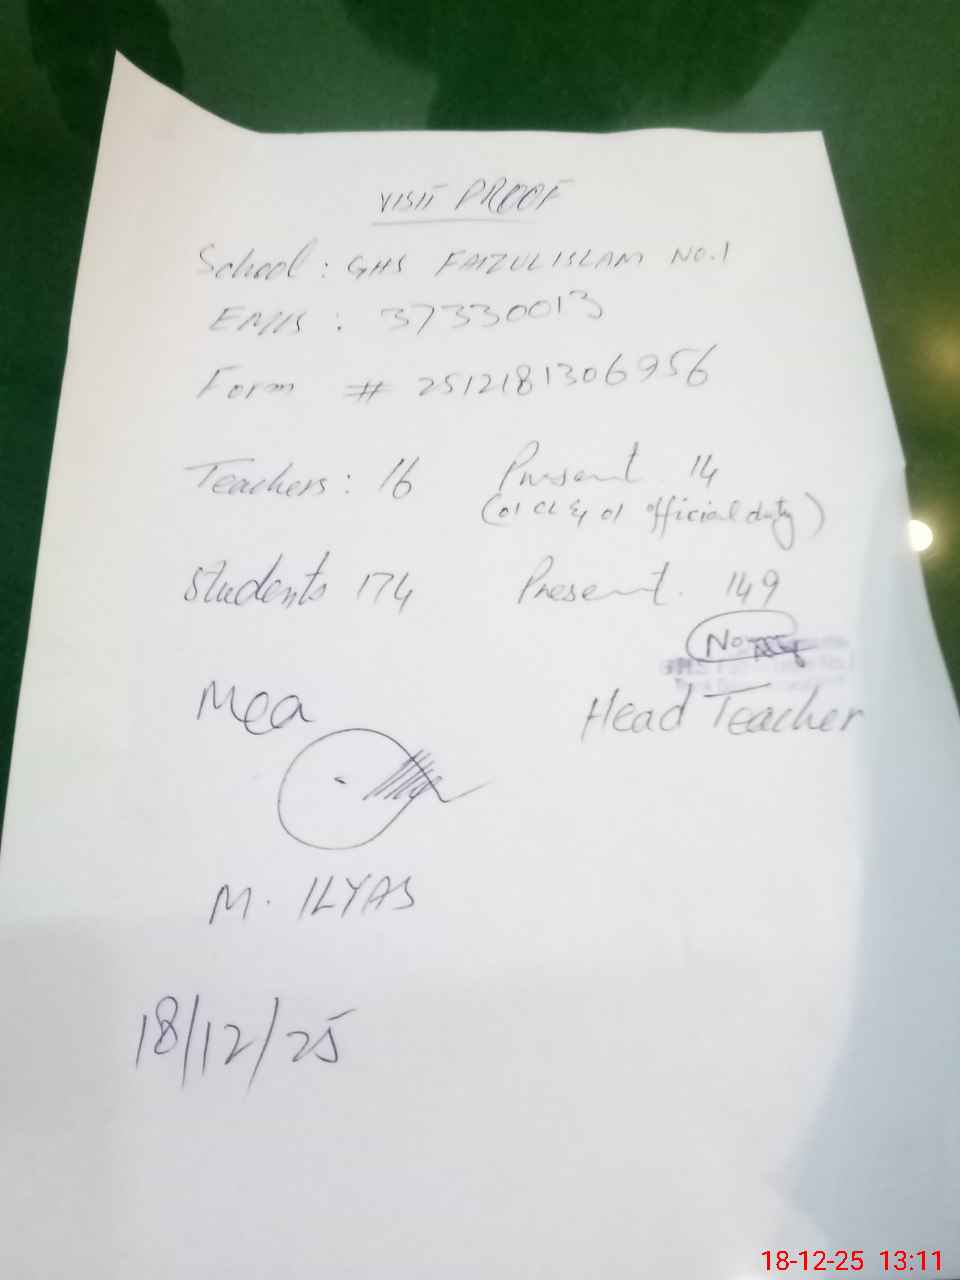 VISIT PROOF
School : GHS FAIZULISLAM NO.1
EMIS : 37330013
Form # 2512181306956
Teachers : 16 Present 14
(01 CL & 01 official duty)
Students 174 Present. 149
Head Teacher
Mea
M. ILYAS
18/12/25
18-12-25 13:11